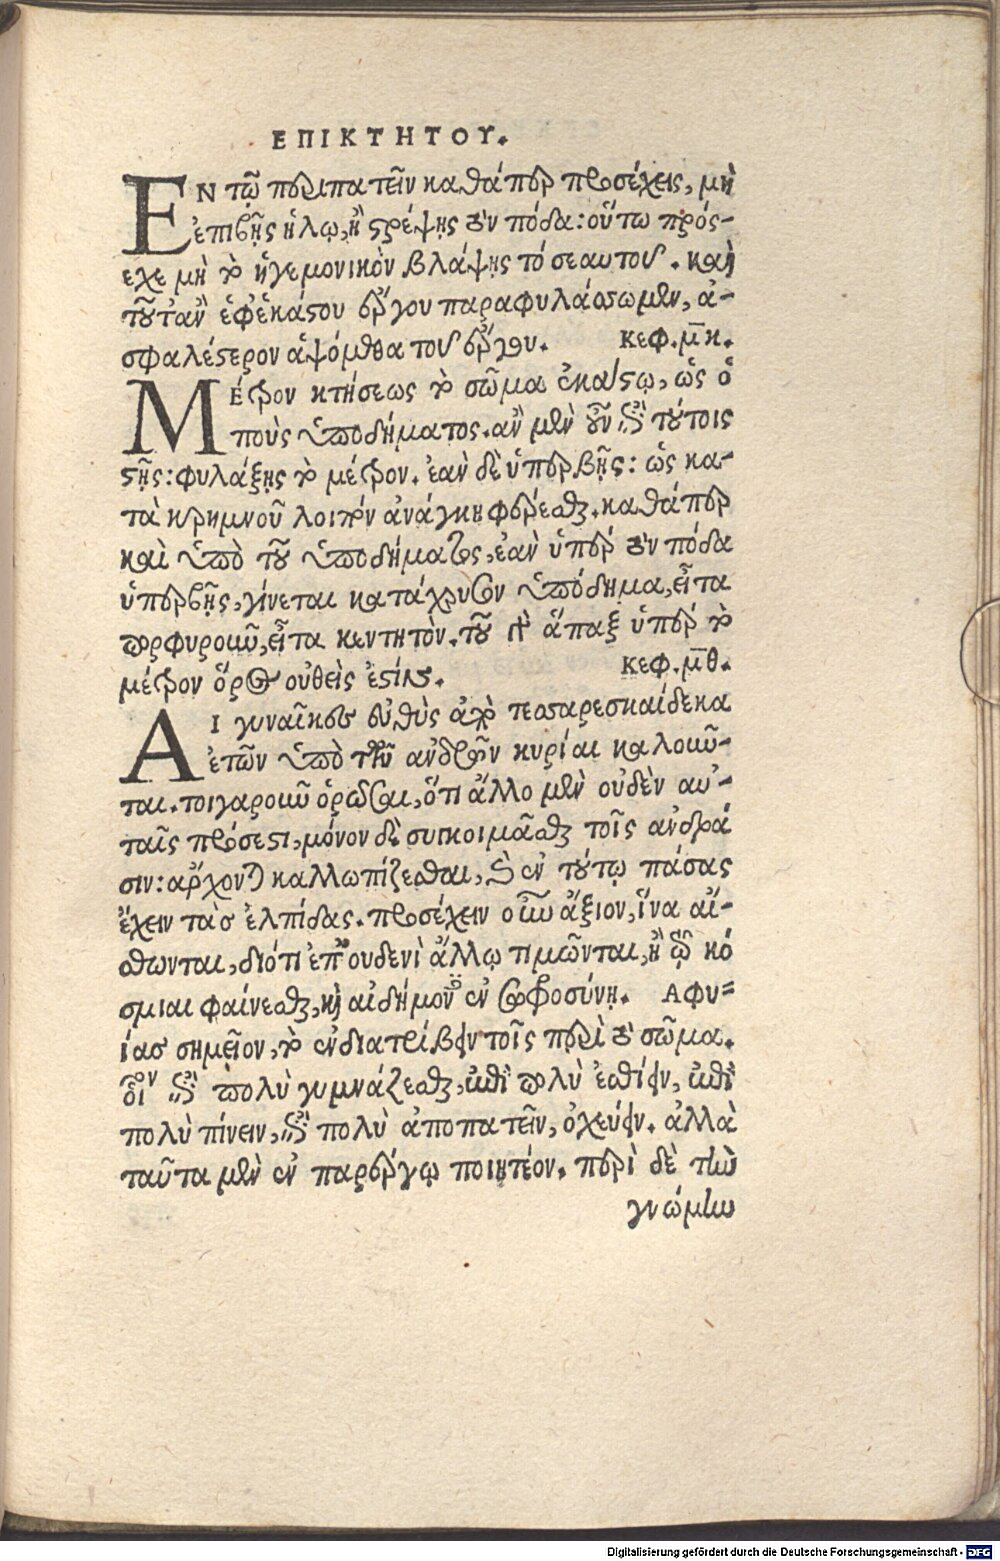 ΕΠΙΚΤΗΤΟΥ.
ΕΝ τῷ περιπατεῖν καθάπερ προσέχεις, μὴ
ἐπιβῇς ἥλῳ, ἢ στρέψῃς τὸν πόδα: οὕτω πρόσ-
εχε μὴ τὸ ἡγεμονικὸν βλάψῃς τὸ σεαυτοῦ. καὶ
τοῦτ' ἂν ἐφ' ἑκάστου ἔργου παραφυλάσσωμεν, ἀ-
σφαλέστερον ἁψόμεθα τοῦ ἔργου. Κεφ. μ̅η.
ΜΕτρον κτήσεως τὸ σῶμα ἑκάστῳ, ὡς ὁ
ποὺς ὑποδήματος. ἂν μὲν οὖν ἐπὶ τούτοις
στῇς: φυλάξῃς τὸ μέτρον. ἐὰν δὲ ὑπερβῇς: ὡς κα-
τὰ κρημνοῦ λοιπὸν ἀνάγκη φέρεσθαι. καθάπερ
καὶ ὑπὸ τοῦ ὑποδήματος, ἐὰν ὑπὲρ τὸν πόδα
ὑπερβῇς, γίνεται κατάχρυσον ὑπόδημα, εἶτα
πορφυροῦν, εἶτα κεντητὸν. τοῦ γὰρ ἅπαξ ὑπὲρ τὸ
μέτρον ὅρος οὐθεὶς ἐστίν. Κεφ. μ̅θ.
ΑΙ γυναῖκες εὐθὺς ἀπὸ τεσσαρεσκαίδεκα
ἐτῶν ὑπὸ τῶν ἀνδρῶν κυρίαι καλοῦν-
ται. τοιγαροῦν ὁρῶσαι, ὅτι ἄλλο μὲν οὐδὲν αὐ-
ταῖς πρόσεστι, μόνον δὲ συγκοιμᾶσθαι τοῖς ἀνδρά
σιν: ἄρχονται καλλωπίζεσθαι, καὶ ἐν τούτῳ πάσας
ἔχειν τὰς ἐλπίδας. προσέχειν οὖν ἄξιον, ἵνα αἴ-
σθωνται, διότι ἐπ' ουδενὶ ἄλλῳ τιμῶνται, ἢ τῷ κό
σμιαι φαίνεσθαι, καὶ αἰδήμονες ἐν σωφροσύνῃ. Αφυ-
ίας σημεῖον, τὸ ἐνδιατρίβειν τοῖς περὶ τὸ σῶμα.
οἷον ἐπὶ πολὺ γυμνάζεσθαι, ἐπὶ πολὺ ἐσθίειν, ἐπὶ
πολὺ πίνειν, ἐπὶ πολὺ ἀποπατεῖν, ὀχεύειν. ἀλλὰ
ταῦτα μὲν ἐν παρέργῳ ποιητέον. περὶ δὲ τὴν
γνώμην
Digitalisierung gefördert durch die Deutsche Forschungsgemeinschaft - DFG